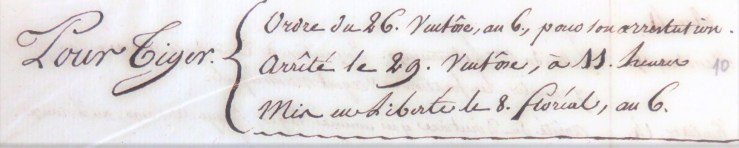 Pour Tiger.
Ordre du 26. Ventôse, au 6., pour son arrestation.
Arrêté le 29. Ventôse, à 11. heures
Mis en Liberte le 8. floréal, au 6.
10